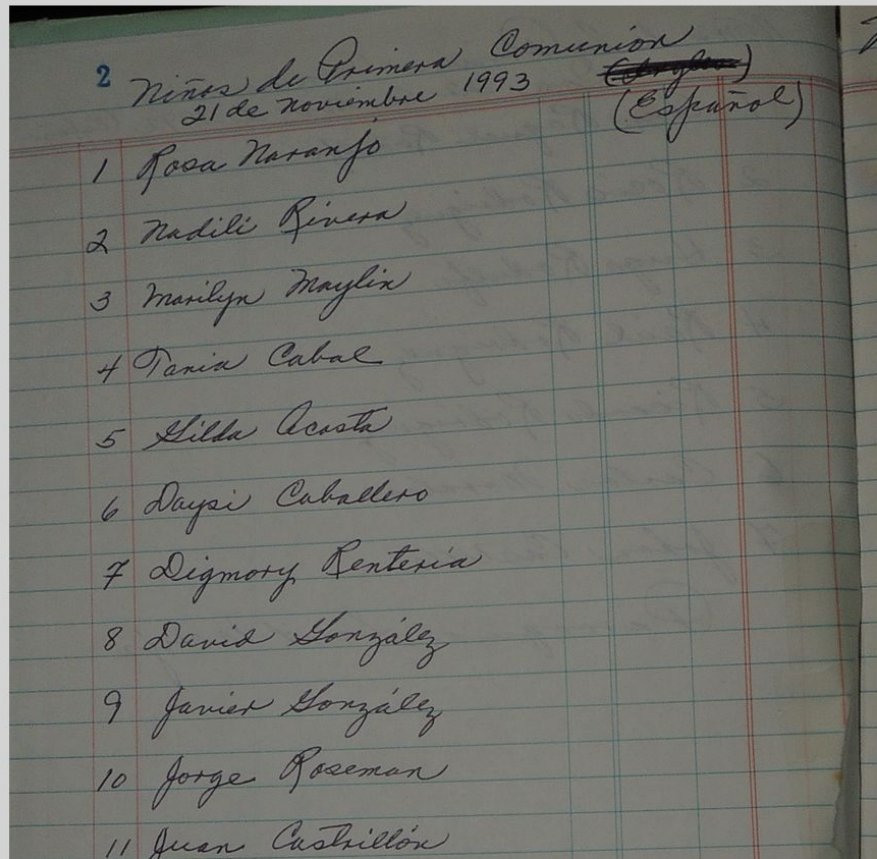 2
Niños de Primera Comunión
21 de noviembre 1993
(Español)
1 Rosa Naranjo
2 Nadili Rivera
3 Marilyn Maylin
4 Tania Cabal
5 Gilda Acosta
6 Daysi Caballero
7 Digmory Rentería
8 David González
9 Javier González
10 Jorge Roseman
11 Juan Castrillón